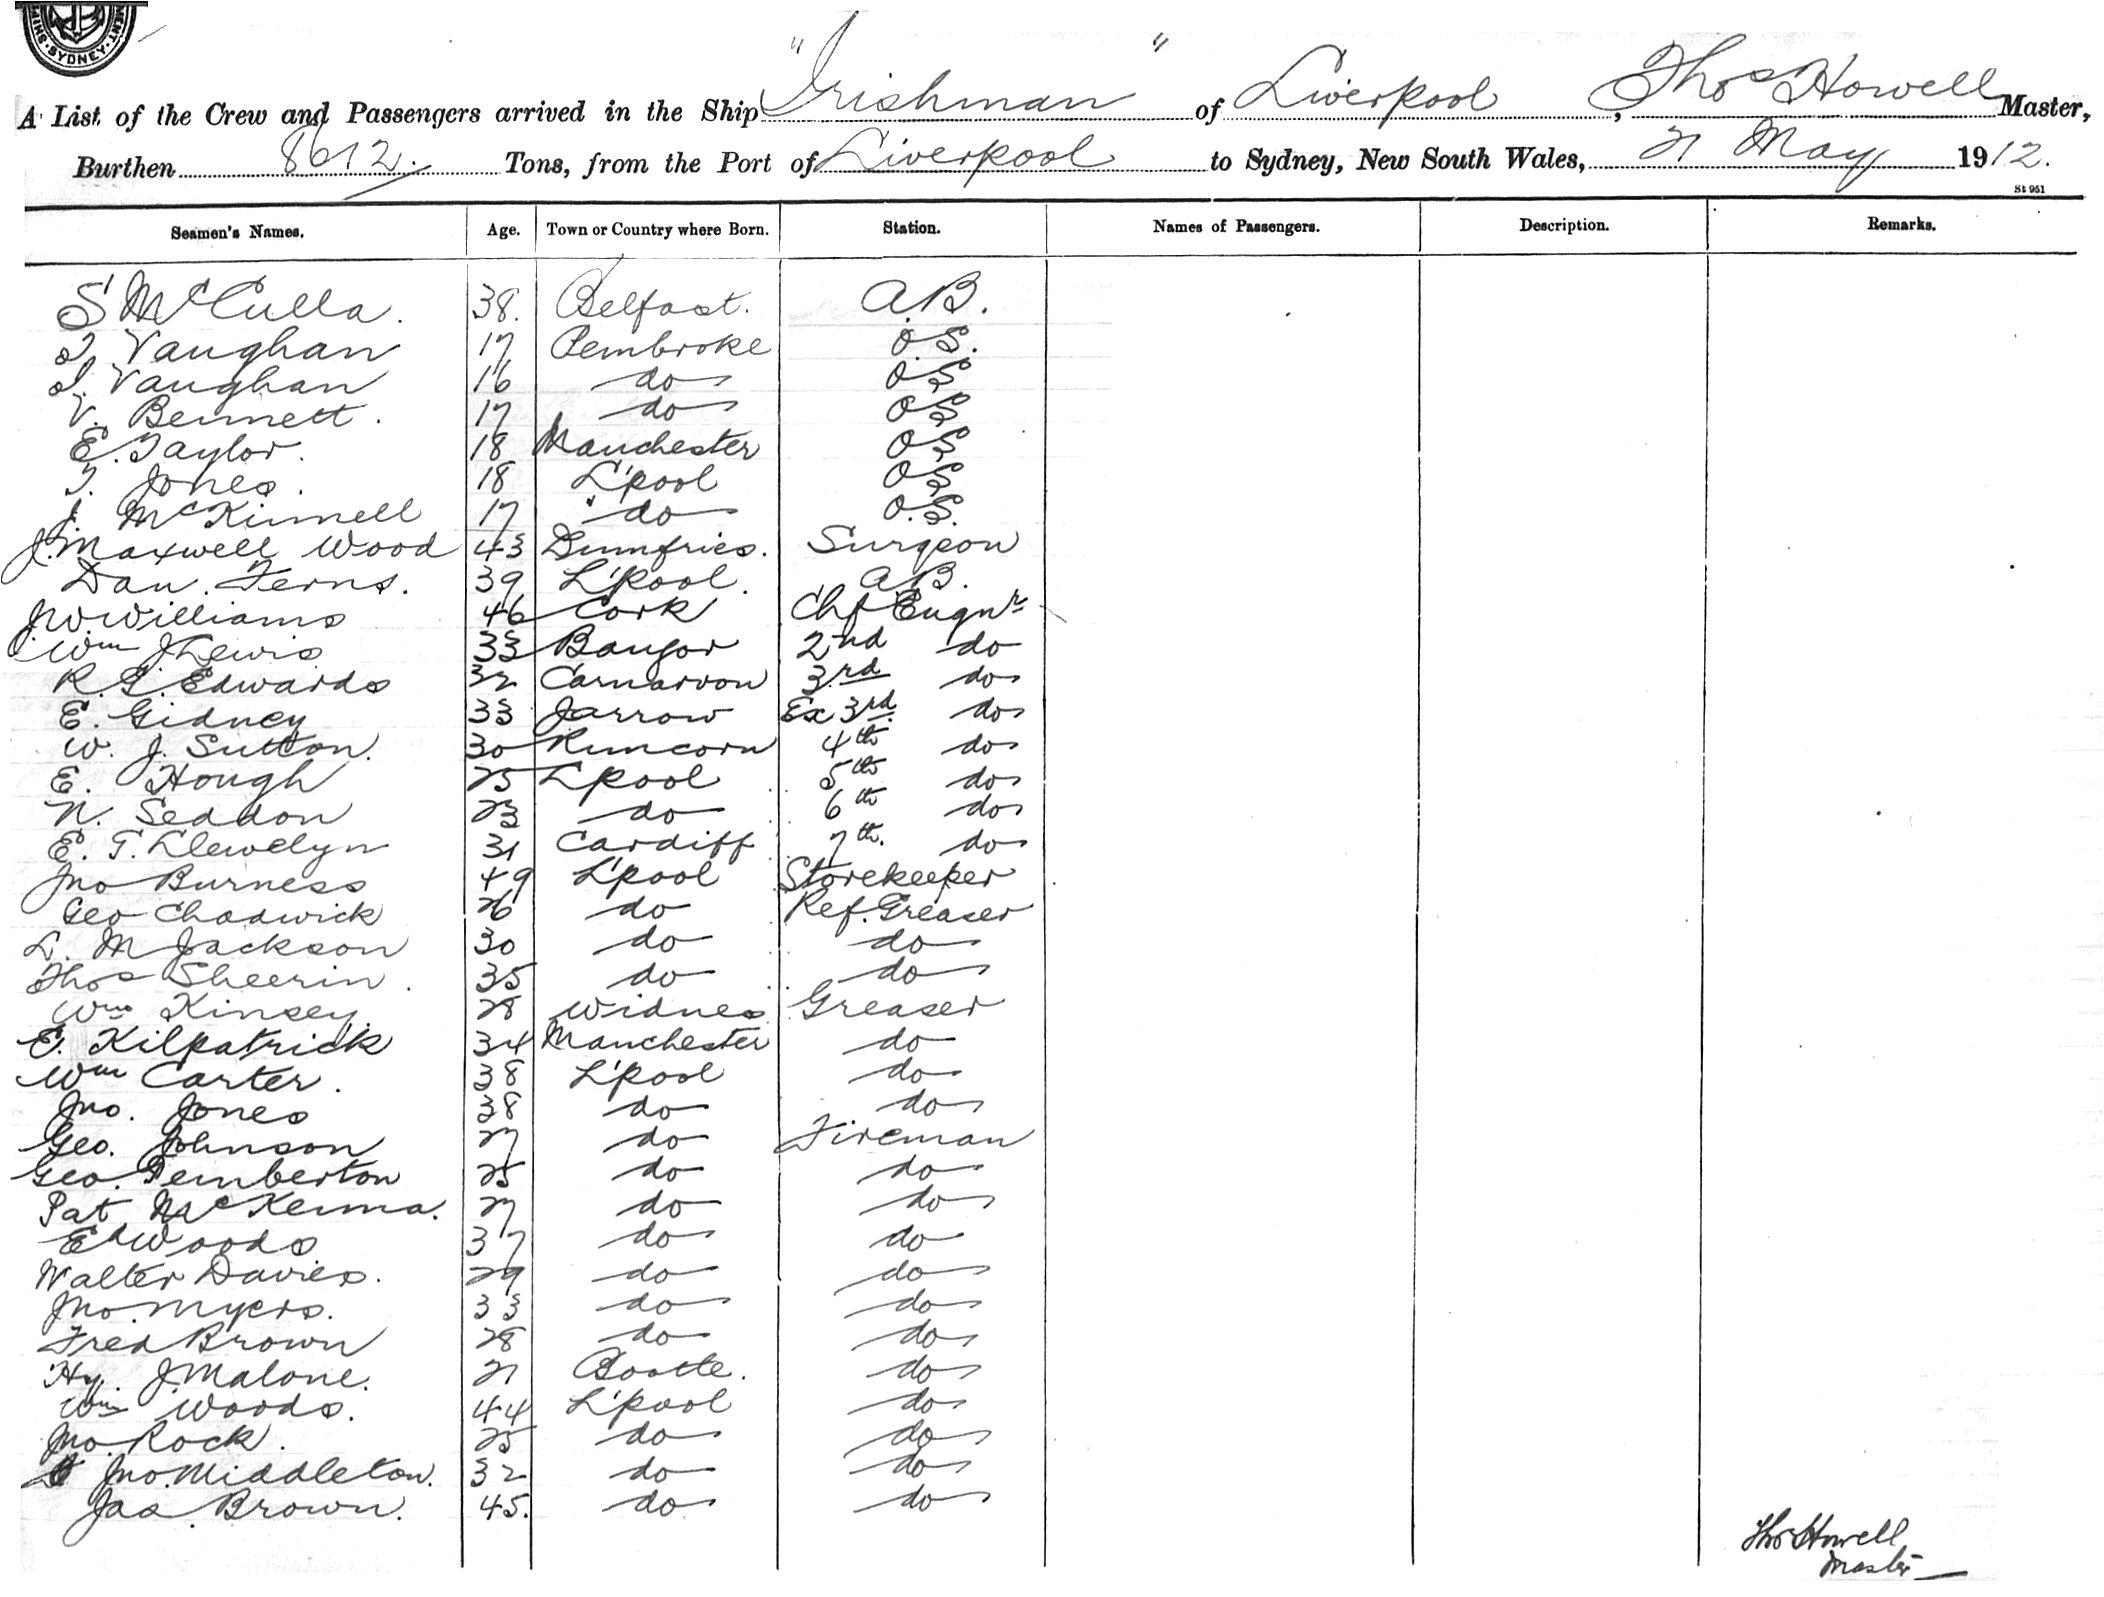 SYDNEY
A List of the Crew and Passengers arrived in the Ship "Irishman" of Liverpool, Thos Howell Master,
Burthen 8612 Tons, from the Port of Liverpool to Sydney, New South Wales, 21 May 1912.
St 951
Seamen's Names. Age. Town or Country where Born. Station. Names of Passengers. Description. Remarks.
S McCulla. 38. Belfast. A.B.
Vaughan 17 Pembroke O.S.
Vaughan 16 do O.S
V. Bennett. 17 do O.S
E. Taylor. 18 Manchester O.S
T. Jones. 18 L'pool O.S
J. McKinnell 17 do O.S.
J. Maxwell Wood 43 Dumfries. Surgeon
Dan. Ferns. 39 L'pool. A.B.
J.W. Williams 46 Cork Chf Engnr
Wm J Lewis 33 Bangor 2nd do
R. G. Edwards 32 Carnarvon 3rd do
E. Gidney 33 Jarrow Ex 3rd do
W. J. Sutton. 30 Runcorn 4th do
E. Hough 25 L'pool 5th do
N. Seddon 23 do 6th do
E. T. Llewelyn 31 Cardiff 7th. do
Jno Burness 49 L'pool Storekeeper
Geo Chadwick 26 do Ref. Greaser
L. M Jackson 30 do do
Thos Sheerin. 35 do do
Wm Kinsey. 28 Widnes Greaser
E. Kilpatrick 34 Manchester do
Wm Carter. 38 L'pool do
Jno. Jones 38 do do
Geo. Johnson 27 do Fireman
Geo. Pemberton 25 do do
Pat McKenna. 27 do do
Ed Woods 37 do do
Walter Davies. 29 do do
Jno Myers. 33 do do
Fred Brown 28 do do
Hy. J. Malone. 21 Bootle. do
Wm Woods. 44 L'pool do
Jno. Rock. 25 do do
Jno. Middleton. 32 do do
Jas. Brown. 45. do do
Thos Howell
Master